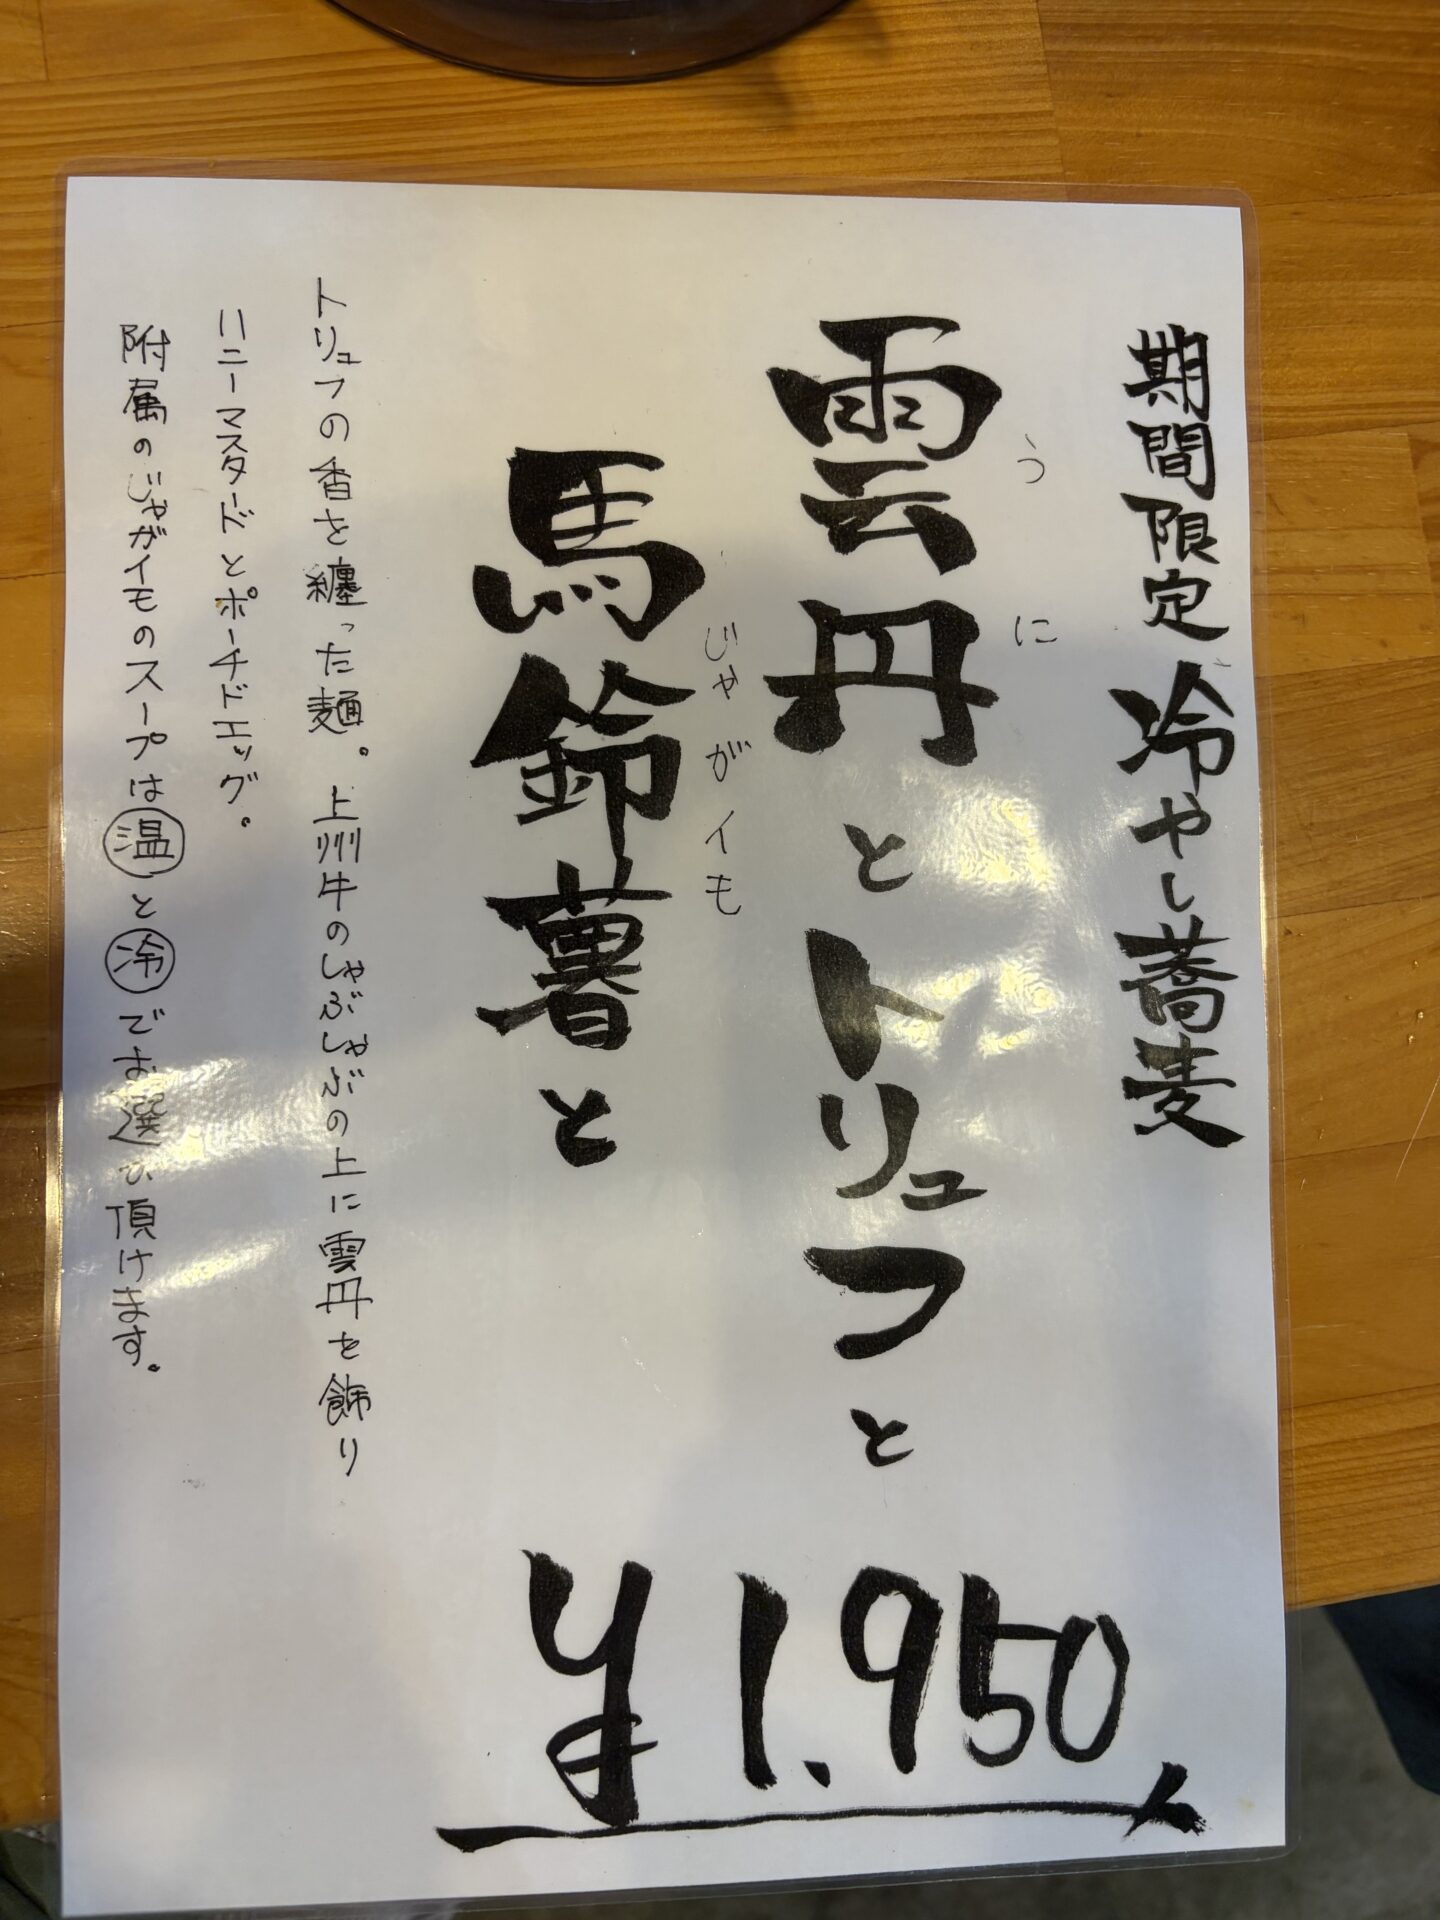 期間限定 冷やし蕎麦
雲丹とトリュフと
うに
馬鈴薯と
じゃがイモ
¥1,950
トリュフの香を纏った麺。上州牛のしゃぶしゃぶの上に雲丹を飾り
ハニーマスタードとポーチドエッグ。
附属のじゃがイモのスープは温と冷でお選び頂けます。